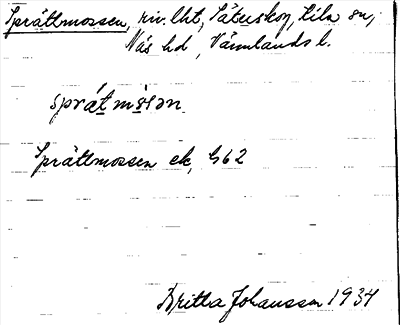 Sprättmossen, riv. lht, Säterskog, Eila sn,
Näs hd, Värmlands l.
sprátmɷ̀sən
Sprättmossen ek, G62
Britta Johansson 1934